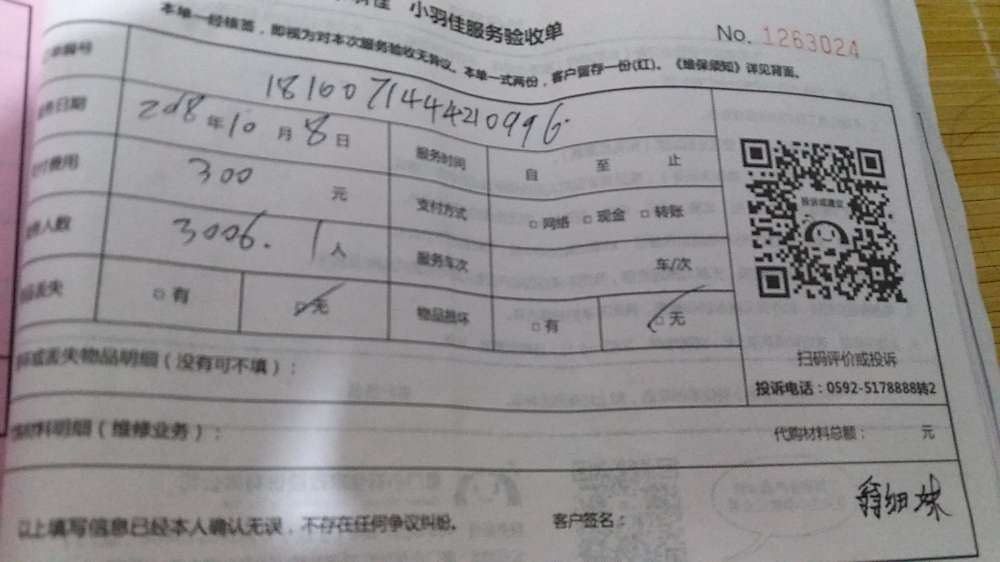 小羽佳服务验收单
No. 1263024
本单一经核签，即视为对本次服务验收无异议。本单一式两份，客户留存一份(红)。《维保须知》详见背面。
单编号 1810071444210996
日期 2018年10月8日 服务时间 自 至 止
费用 300 元 支付方式 □网络 □现金 □转账
人数 3006. 1人 服务车次 车/次
丢失 □有 □无 物品损坏 □有 □无
投诉或建议
扫码评价或投诉
投诉电话：0592-5178888转2
或丢失物品明细（没有可不填）：
材料明细（维修业务）：
代购材料总额： 元
以上填写信息已经本人确认无误，不存在任何争议纠纷。 客户签名： 翁细妹